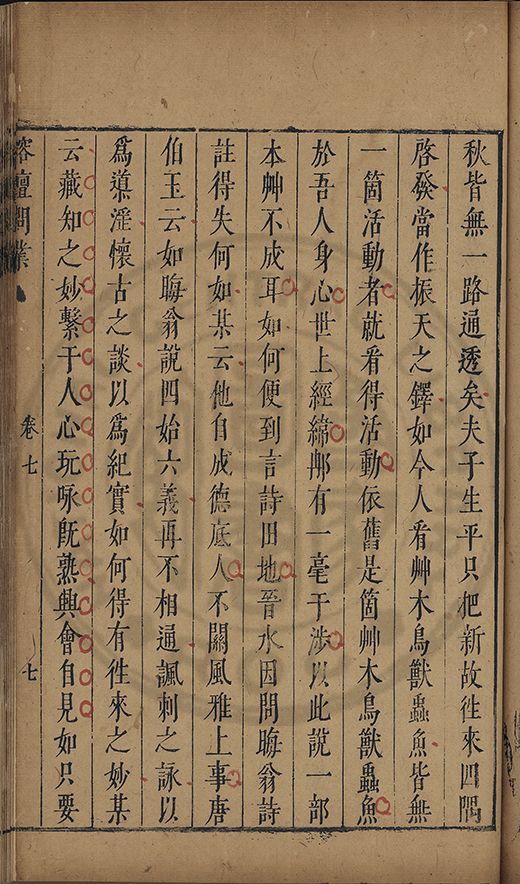 秋皆無一路通透矣夫子生平只把新故徃來四隅
啓發當作振天之鐸如今人看艸木鳥獸蟲魚皆無
一箇活動者就看得活動依舊是箇艸木鳥獸蟲魚
於吾人身心世上經緯那有一毫干涉以此說一部
本艸不成耳如何便到言詩田地晉水因問晦翁詩
註得失何如某云他自成德底人不關風雅上事唐
伯玉云如晦翁說四始六義再不相通諷刺之詠以
爲慕淫懷古之談以爲紀實如何得有徃來之妙某
云藏知之妙繫于人心玩咏旣熟興會自見如只要
榕壇問業
卷七
七